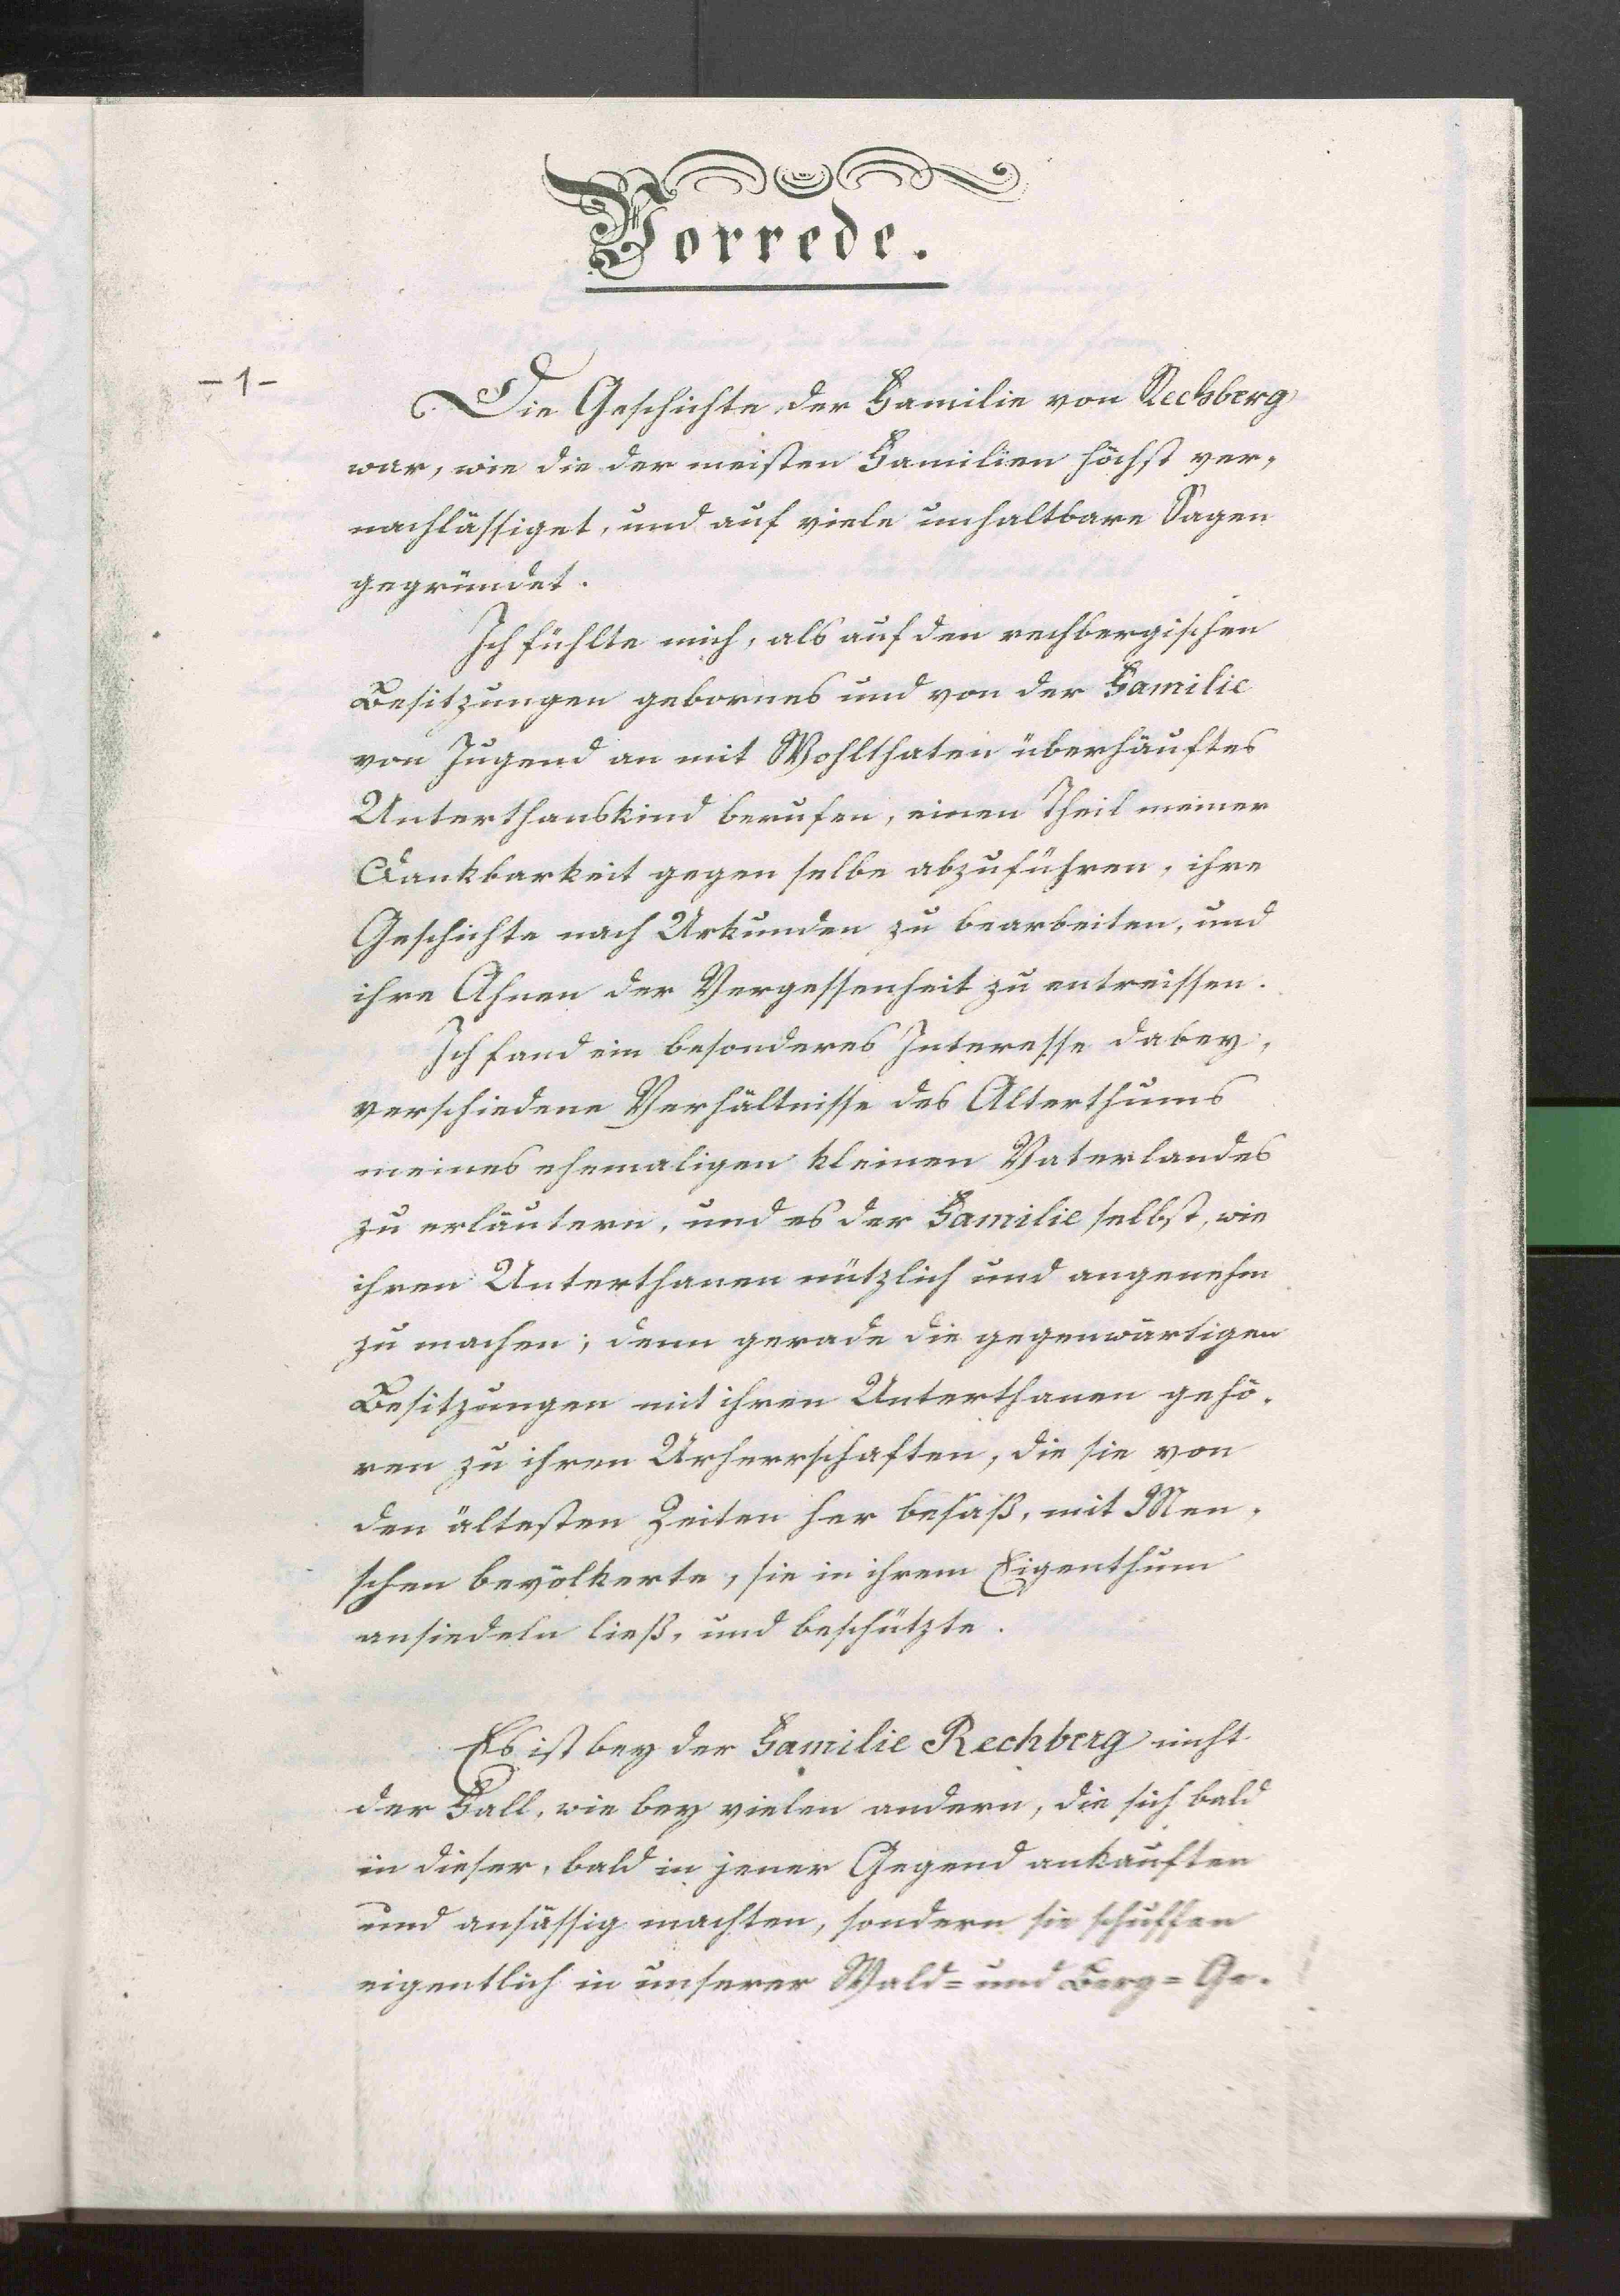 Vorrede.
- 1 -
Die Geschichte der Familie von Rechberg
war, wie die der meisten Familien höchst ver-
nachlässiget, und auf viele unhaltbare Sagen
gegründet.
Ich fühlte mich, als auf den rechbergischen
Besitzungen gebornes und von der Familie
von Jugend an mit Wohlthaten überhäuftes
Unterthanskind berufen, einen Theil meiner
Dankbarkeit gegen selbe abzuführen, ihre
Geschichte nach Urkunden zu bearbeiten, und
ihre Ahnen der Vergessenheit zu entreissen.
Ich fand ein besonderes Interesse dabey,
verschiedene Verhältnisse des Alterthums
meines ehemaligen kleinen Vaterlandes
zu erläutern, und es der Familie selbst, wie
ihren Unterthanen nützlich und angenehm
zu machen; denn gerade die gegenwärtigen
Besitzungen mit ihren Unterthanen gehö-
ren zu ihren Urherrschaften, die sie von
den ältesten Zeiten her besaß, mit Men-
schen bevölkerte, sie in ihrem Eigenthum
ansiedeln ließ, und beschützte.
Es ist bey der Familie Rechberg nicht
der Fall, wie bey vielen andern, die sich bald
in dieser, bald in jener Gegend ankauften
und ansässig machten, sondern sie schuffen
eigentlich in unserer Wald= und Berg=Ge-